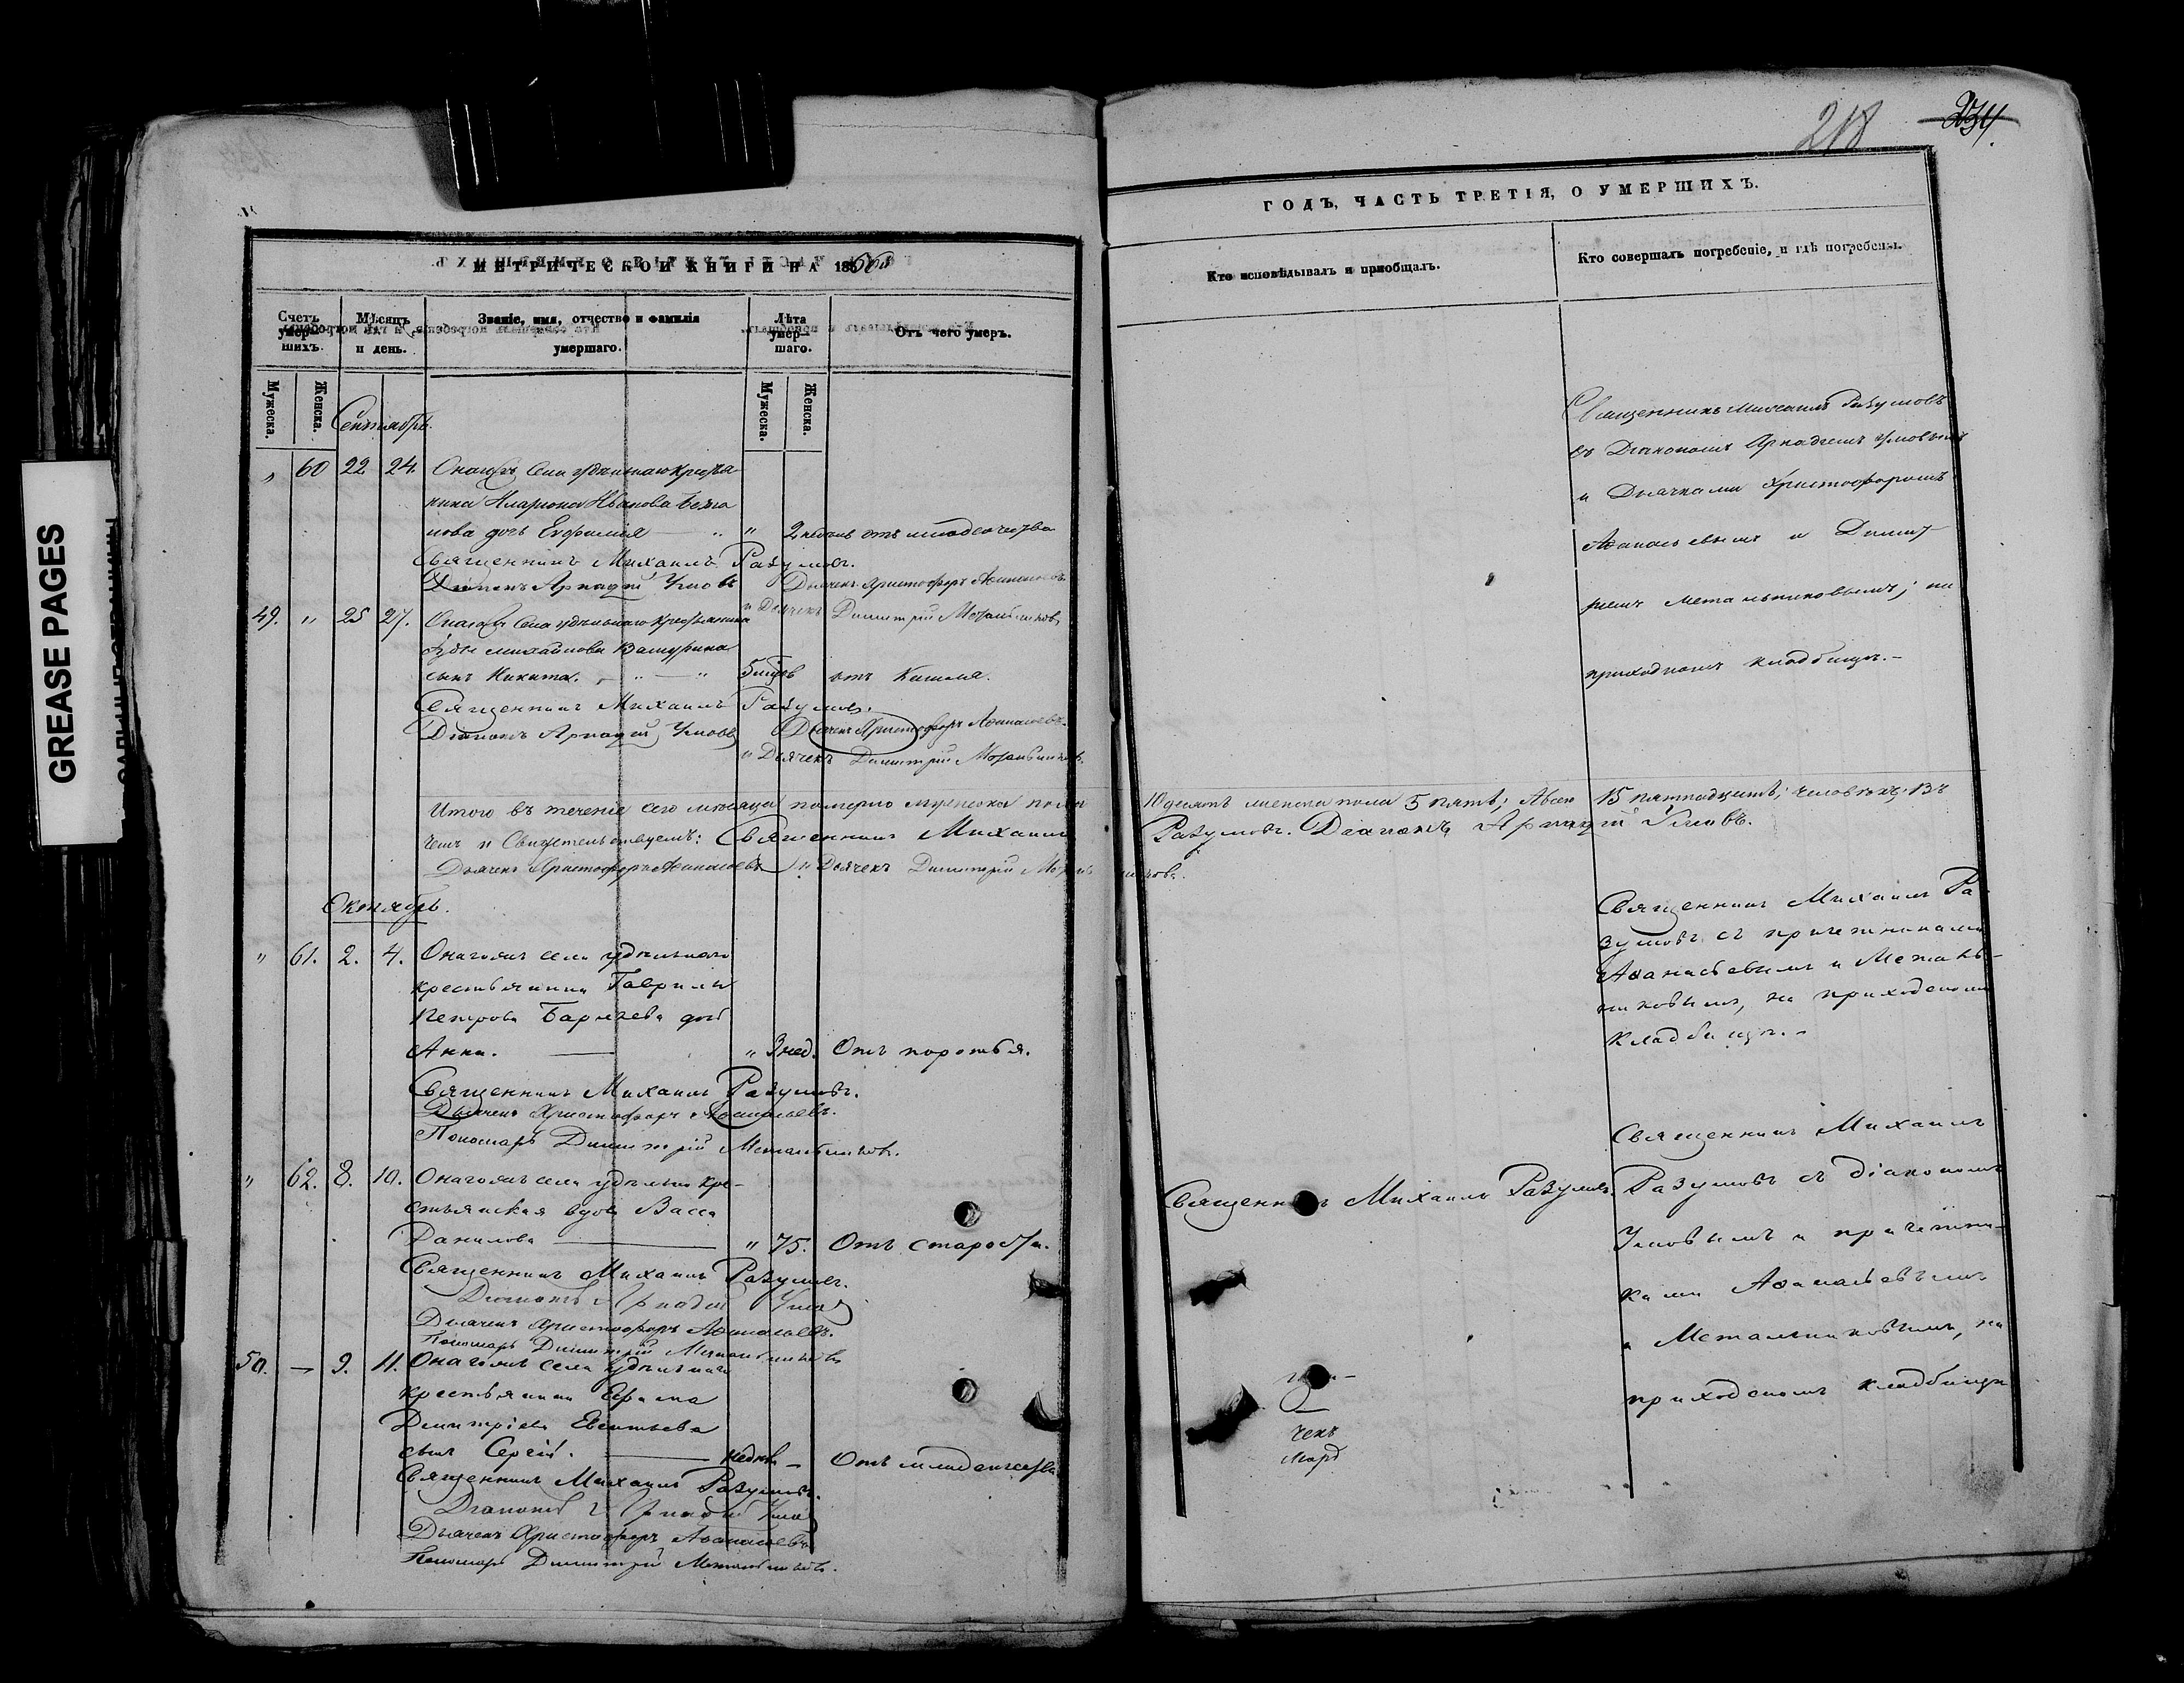 GREASE PAGES
218
234.
МЕТРИЧЕСКОЙ КНИГИ НА 1866
Счетъ умер-шихъ.
Мѣсяцъ и день.
Званіе, имя, отчество и фамилія умершаго.
Лѣта умер-шаго.
Отъ чего умеръ.
Мужеска.
Женска.
Мужеска.
Женска.
Сентябрь.
" 60 22 24. Онагожъ села удѣльнаго крестья
нина Иларіона Иванова
нова дочь Евфимія " 2 недѣль отъ младенчества
Священникъ Михаилъ Разумовъ.
Діаконъ Аркадій Умовъ Дьячекъ Христофоръ Аѳанасьевъ
и Дьячекъ Димитрій Метальниковъ
49. " 25 27. Онагожъ села удѣльнаго крестьянина
Михайлова
сынъ Никита. отъ Кашля.
Священникъ Михаилъ Разумовъ.
Діаконъ Аркадій Умовъ Дьячекъ Христофоръ Аѳанасьевъ.
и Дьячекъ Димитрій Метальниковъ.
Итого въ теченіе сего мѣсяца померло мужеска пола
чемъ и Свидѣтельствуемъ: Священникъ Михаилъ
Дьячекъ Христофоръ Аѳанасьевъ и Дьячекъ Димитрій Метальниковъ.
Октябрь.
" 61. 2. 4. Онагожъ села удѣльнаго
крестьянина Гаврилы
Петрова дочь
Анна. " 3 нед. Отъ
Священникъ Михаилъ Разумовъ.
Дьячекъ Христофоръ Аѳанасьевъ.
Пономарь Димитрій Метальниковъ.
" 62. 8. 10. Онагожъ села удѣльна кре-
стьянская вдова Васса
Данилова " 75. Отъ старости.
Священникъ Михаилъ Разумовъ.
Діаконъ Аркадій Умовъ
Дьячекъ Христофоръ Аѳанасьевъ.
Пономарь Димитрій Метальниковъ
50. — 9. 11. Онагожъ села удѣльнаго
крестьянина
Димитріева
сынъ Сергій. Отъ младенчества
Священникъ Михаилъ Разумовъ.
Діаконъ Аркадій Умовъ
Дьячекъ Христофоръ Аѳанасьевъ
Пономарь Димитрій Метальниковъ.
ГОДЪ, ЧАСТЬ ТРЕТІЯ, О УМЕРШИХЪ.
Кто исповѣдывалъ и пріобщалъ.
Кто совершалъ погребеніе, и гдѣ погребены.
Священникъ Михаилъ Разумовъ
съ Діакономъ Аркадіемъ Умовымъ
и Дьячками Христофоромъ
Аѳанасьевымъ и Димит
ріемъ Метальниковымъ; на
приходномъ кладбищѣ.-
10 десять женска пола 5 пять; Авсего 15 пятнадцать; человѣкъ; Въ
Разумовъ. Діаконъ Аркадій Умовъ.
Священникъ Михаилъ Ра-
зумовъ съ причетниками
Аѳанасьевымъ и Металь-
никовымъ, на приходскомъ
кладбищѣ.-
Священникъ Михаилъ
Священникъ Михаилъ Разумовъ. Разумовъ съ діакономъ
Умовымъ и причетни-
ками Аѳанасьевымъ
и Метальниковымъ, на
приходскомъ кладбищѣ